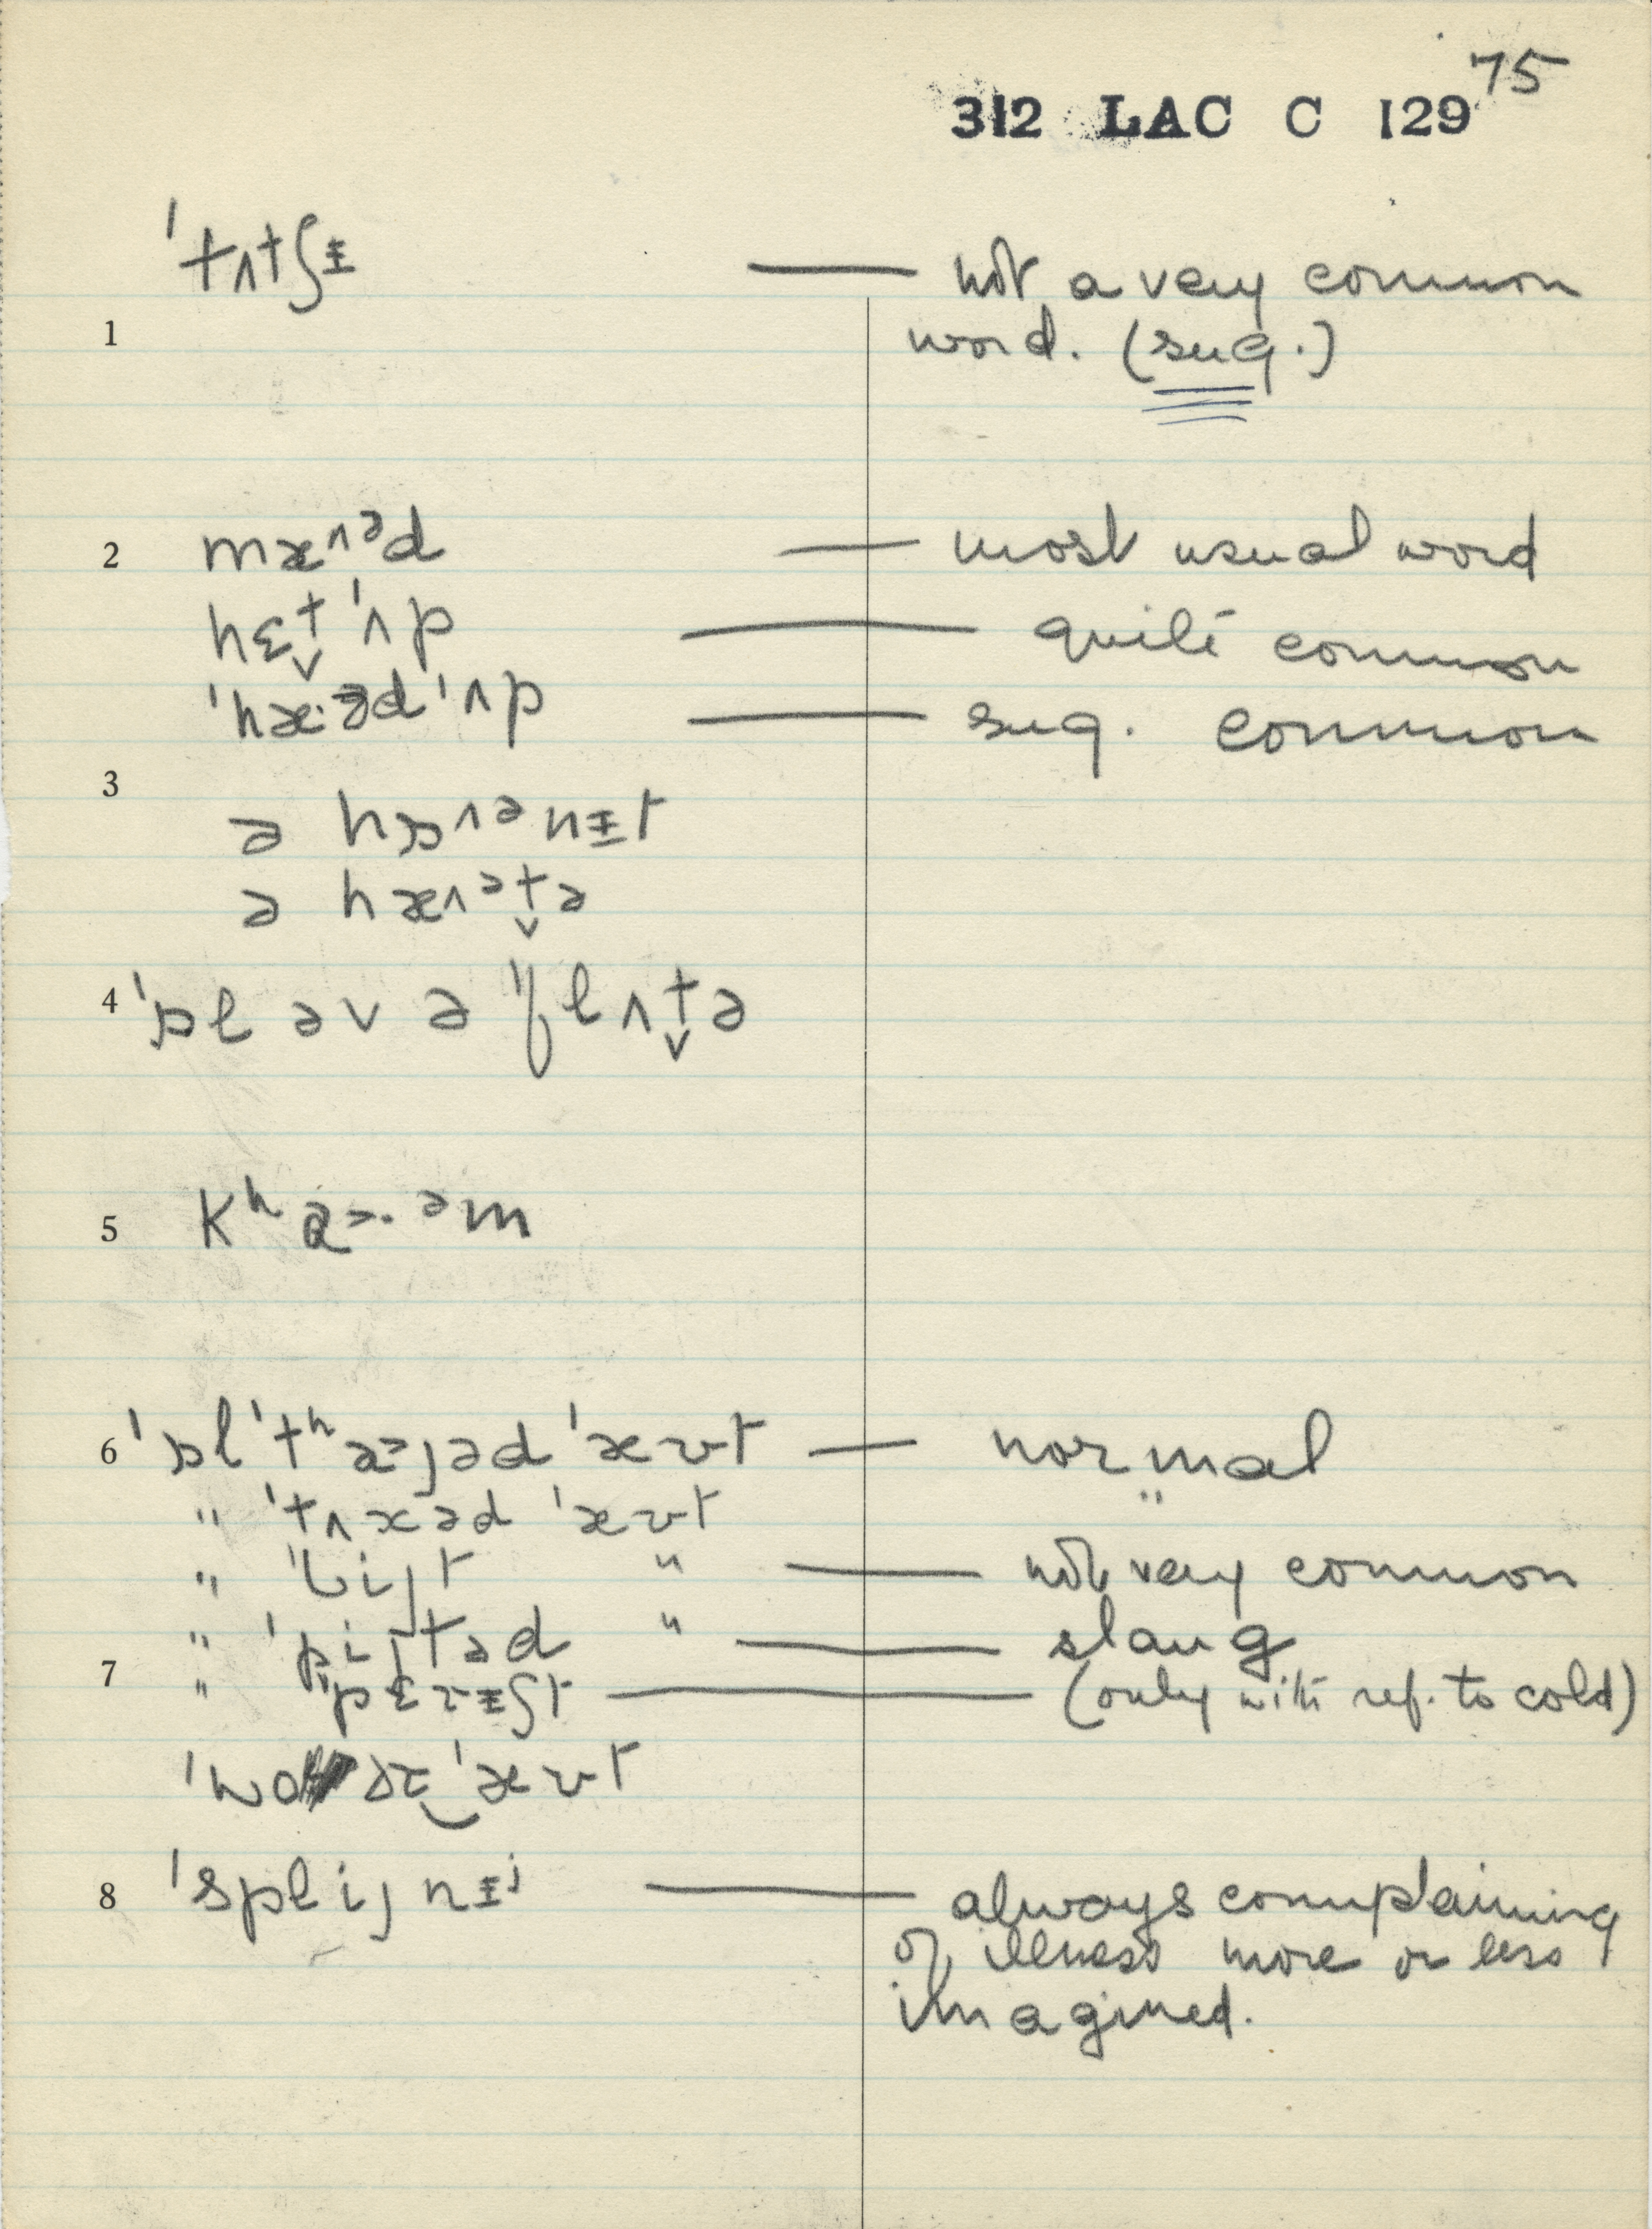 75
312 LAC C 129
1 ˈtʌtʃɨ — not a very common
word. (sug.)
2 mæ^ᵊd — most usual word
hɛt̬ ˈʌp — quite common
ˈhæ·ᵊd ˈʌp — sug. common
3
ə hɒ^ᵊnɨt
ə hæ^ᵊt̬ə
4 ˈɒl əv ə ˈflʌt̬ə
5 kʰa>·ᵊm
6 ˈɒl ˈtʰa>ɪəd ˈæʊt — normal
" ˈtʌkəd ˈæʊt
" ˈbijt " — not very common
" ˈpijtəd " — slang
7 " ˈpɛrɨʃt — (only with ref. to cold)
ˈwɔɚ‿ˈæʊt
8 ˈsplijnɨʲ — always complaining
of illness more or less
imagined.